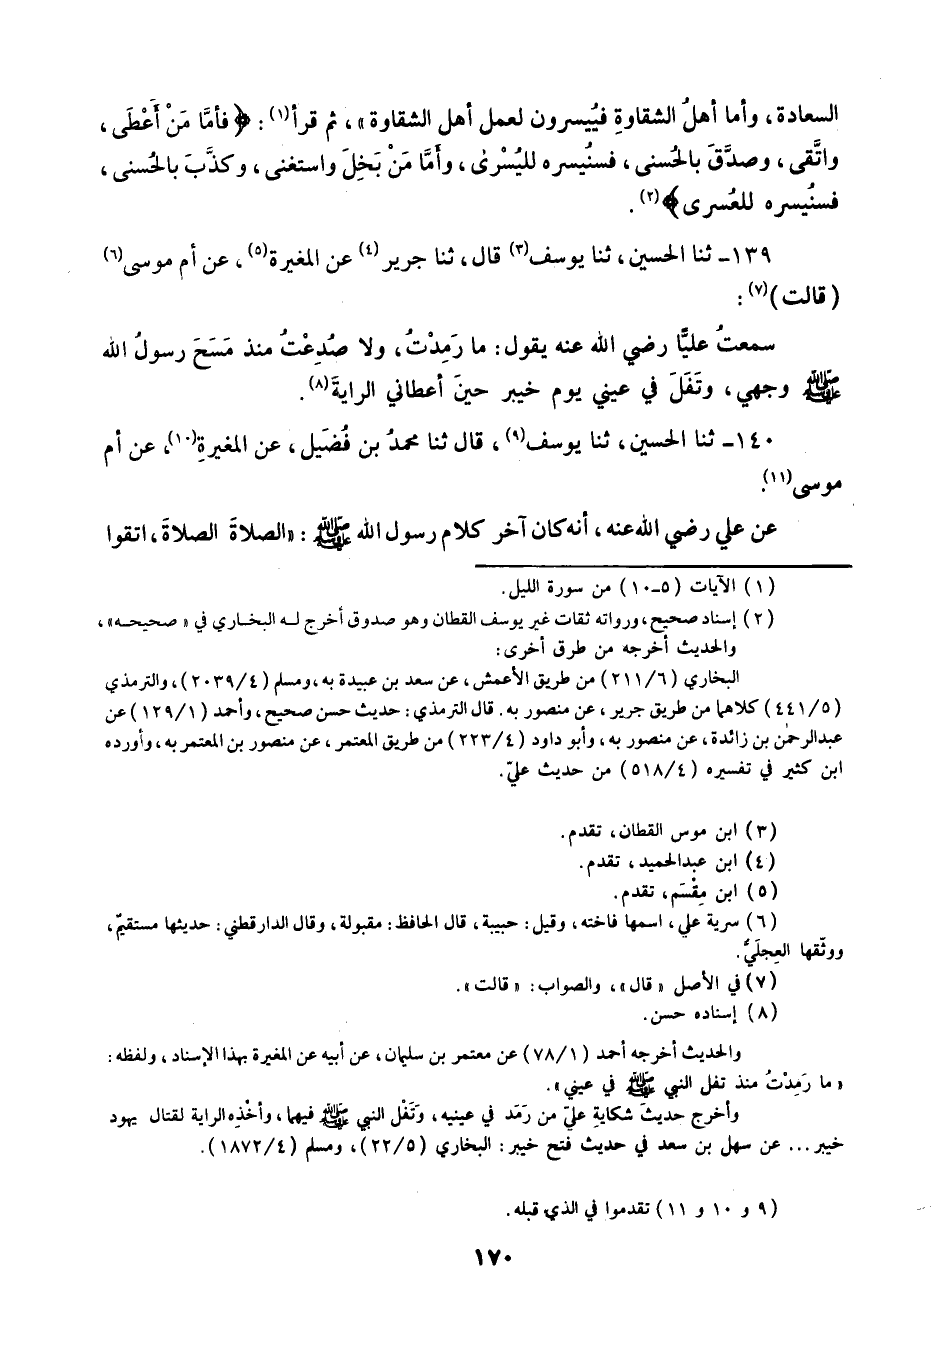 السعادة، وأما أهلُ الشقاوةِ فيُيسرون لعمل أهل الشقاوة»، ثم قرأ(١): ﴿فأمَّا مَنْ أَعْطَى،
واتَّقى، وصدَّقَ بالحُسنى، فسنُيسره لليُسْرى، وأمَّا مَنْ بَخِلَ واستغنى، وكذَّبَ بالحُسنى،
فسنُيسره للعُسرى﴾(٢).
١٣٩ـ ثنا الحسين، ثنا يوسف(٣) قال، ثنا جرير(٤) عن المغيرة(٥)، عن أم موسى(٦)
(قالت)(٧):
سمعتُ عليًّا رضي الله عنه يقول: ما رَمِدْتُ، ولا صُدِعْتُ منذ مَسَحَ رسولُ الله
ﷺ وجهي، وتَفَلَ في عيني يوم خيبر حينَ أعطاني الرايةَ(٨).
١٤٠ـ ثنا الحسين، ثنا يوسف(٩)، قال ثنا محمدُ بن فُضَيل، عن المغيرةِ(١٠)، عن أم
موسى(١١).
عن علي رضي الله عنه، أنه كان آخر كلام رسول الله ﷺ: «الصلاةَ الصلاةَ، اتقوا
(١) الآيات (٥ـ١٠) من سورة الليل.
(٢) إسناد صحيح، ورواته ثقات غير يوسف القطان وهو صدوق أخرج لـه البخاري في «صحيحـه»،
والحديث أخرجه من طرق أخرى:
البخاري (٢١١/٦) من طريق الأعمش، عن سعد بن عبيدة به، ومسلم (٢٠٣٩/٤)، والترمذي
(٤٤١/٥) كلاهما من طريق جرير، عن منصور به. قال الترمذي: حديث حسن صحيح، وأحمد (١٢٩/١) عن
عبدالرحمٰن بن زائدة، عن منصور به، وأبو داود (٢٢٣/٤) من طريق المعتمر، عن منصور بن المعتمر به، وأورده
ابن كثير في تفسيره (٥١٨/٤) من حديث عليّ.
(٣) ابن موس القطان، تقدم.
(٤) ابن عبدالحميد، تقدم.
(٥) ابن مِقْسَم، تقدم.
(٦) سرية علي، اسمها فاخته، وقيل: حبيبة، قال الحافظ: مقبولة، وقال الدارقطني: حديثها مستقيمٌ،
ووثّقها العِجلَيُّ.
(٧) في الأصل «قال»، والصواب: «قالت».
(٨) إسناده حسن.
والحديث أخرجه أحمد (٧٨/١) عن معتمر بن سليمان، عن أبيه عن المغيرة بهذا الإسناد، ولفظه:
«ما رَمِدْتُ منذ تفل النبي ﷺ في عيني».
وأخرج حديثَ شكايةِ عليّ من رَمَد في عينيه، وتَفْل النبي ﷺ فيهما، وأخْذِه الراية لقتال يهود
خيبر... عن سهل بن سعد في حديث فتح خيبر: البخاري (٢٢/٥)، ومسلم (١٨٧٢/٤).
(٩ و ١٠ و ١١) تقدموا في الذي قبله.
١٧٠